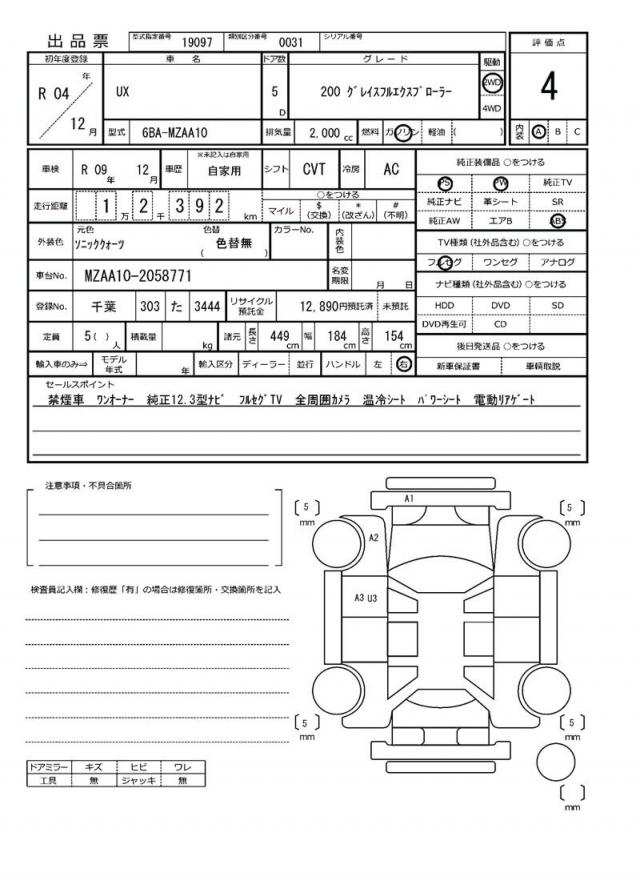 出品票 型式指定番号 19097 類別区分番号 0031 シリアル番号
評価点
初年度登録 車名 ドア数 グレード 駆動
R 04 年 12 月 UX 5 D 200 グレイスフルエクスプローラー 2WD 4WD
4
型式 6BA-MZAA10 排気量 2,000 cc 燃料 ガソリン 軽油 ( ) 内装 A B C
車検 R 09 年 12 月 車歴 ※未記入は自家用 自家用 シフト CVT 冷房 AC
走行距離 1 万 2 千 3 9 2 km ○をつける
マイル $(交換) *(改ざん) #(不明)
外装色 元色 ソニッククォーツ 色替 ( 色替無 ) カラーNo. 内装色
車台No. MZAA10-2058771 名変期限 月 日
登録No. 千葉 303 た 3444 リサイクル預託金 12,890円預託済 未預託
定員 5( ) 人 積載量 kg 諸元 長さ 449 cm 幅 184 cm 高さ 154 cm
輸入車のみ⇒ モデル年式 年 輸入区分 ディーラー 並行 ハンドル 左 右
純正装備品 ○をつける
PS PW 純正TV
純正ナビ 革シート SR
純正AW エアB ABS
TV種類 (社外品含む) ○をつける
フルセグ ワンセグ アナログ
ナビ種類 (社外品含む) ○をつける
HDD DVD SD
DVD再生可 CD
後日発送品 ○をつける
新車保証書 車輌取説
セールスポイント
禁煙車 ワンオーナー 純正12.3型ナビ フルセグTV 全周囲カメラ 温冷シート パワーシート 電動リアゲート
注意事項・不具合箇所
検査員記入欄：修復歴「有」の場合は修復箇所・交換箇所を記入
A1
〔 5 〕 mm 〔 5 〕 mm
A2
A3 U3
〔 5 〕 mm 〔 5 〕 mm
〔 〕 mm
ドアミラー キズ ヒビ ワレ
工具 無 ジャッキ 無